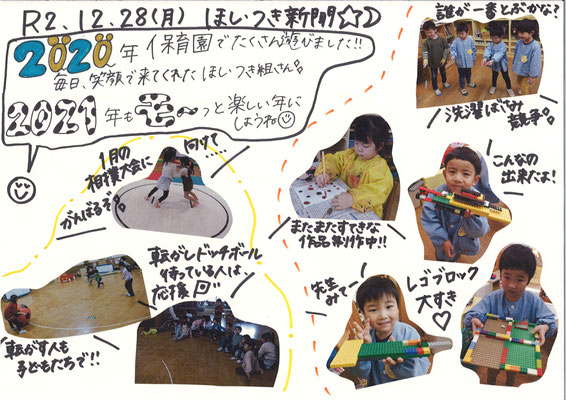 R2.12.28(月) ほし・つき新聞☆☽
2020年 保育園でたくさん遊びました!!
毎日、笑顔で来てくれた ほし・つき組さん。
2021年もモ〜っと楽しい年に
しようね☺
誰が一番とぶかな?
洗濯ばさみ
競争。
1月の
相撲大会に
向けて……
がんばるぞ。
こんなの
出来たよ!
またまたすてきな
作品制作中!!
転がしドッチボール
待っている人は、
応援
転がす人も
子どもたちで!!
先生
みてー
レゴブロック
大すき
♡